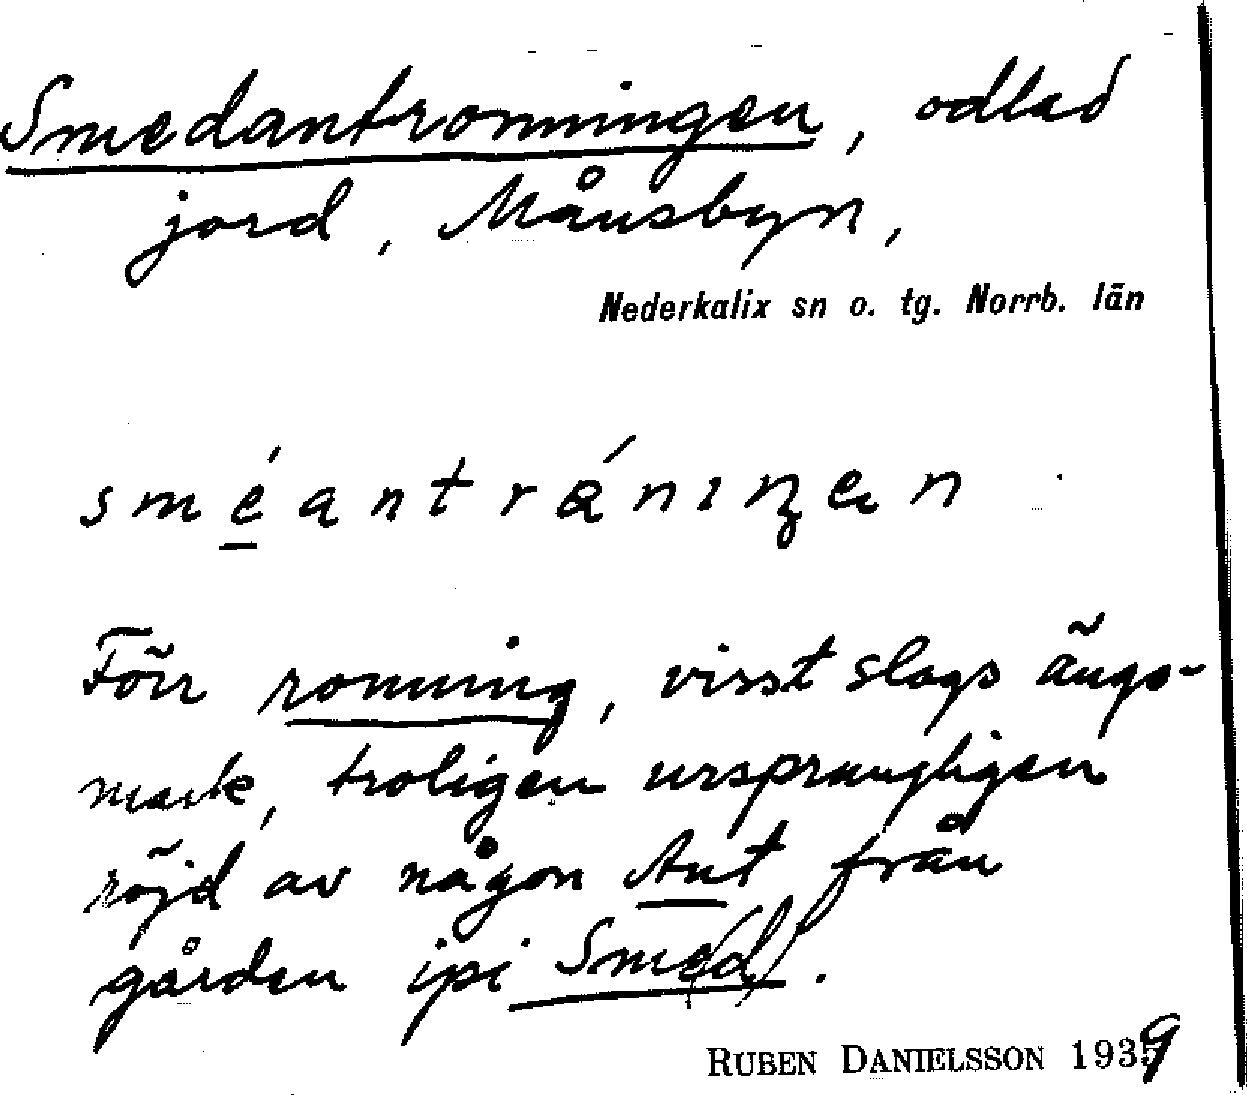 Smedantronningen, odlad
jord, Månsbyn,
Nederkalix sn o. tg. Norrb. län
sméantráninŋen
Förr ronning, visst slags ängs-
mark, troligen ursprungligen
röjd av någon Ant från
gården ipi Sme(d).
RUBEN DANIELSSON 1939